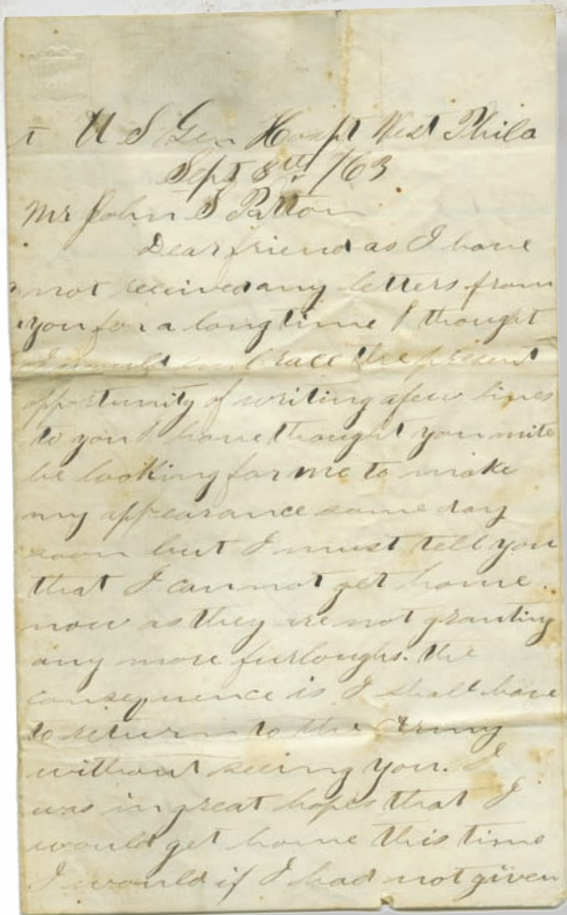 U S Gen Hospt West Phila
Sept 8th /63
Mr John S Patton
Dear friend as I have
not received any letters from
you for a long time I thought
I would embrace the present
opportunity of writing a few lines
to you I have thought you mite
be looking for me to make
my appearance some day
soon but I must tell you
that I cannot get home
now as they are not granting
any more furloughs. the
consequence is I shall have
to return to the Army
without seeing you. I
was in great hopes that I
would get home this time
I would if I had not given